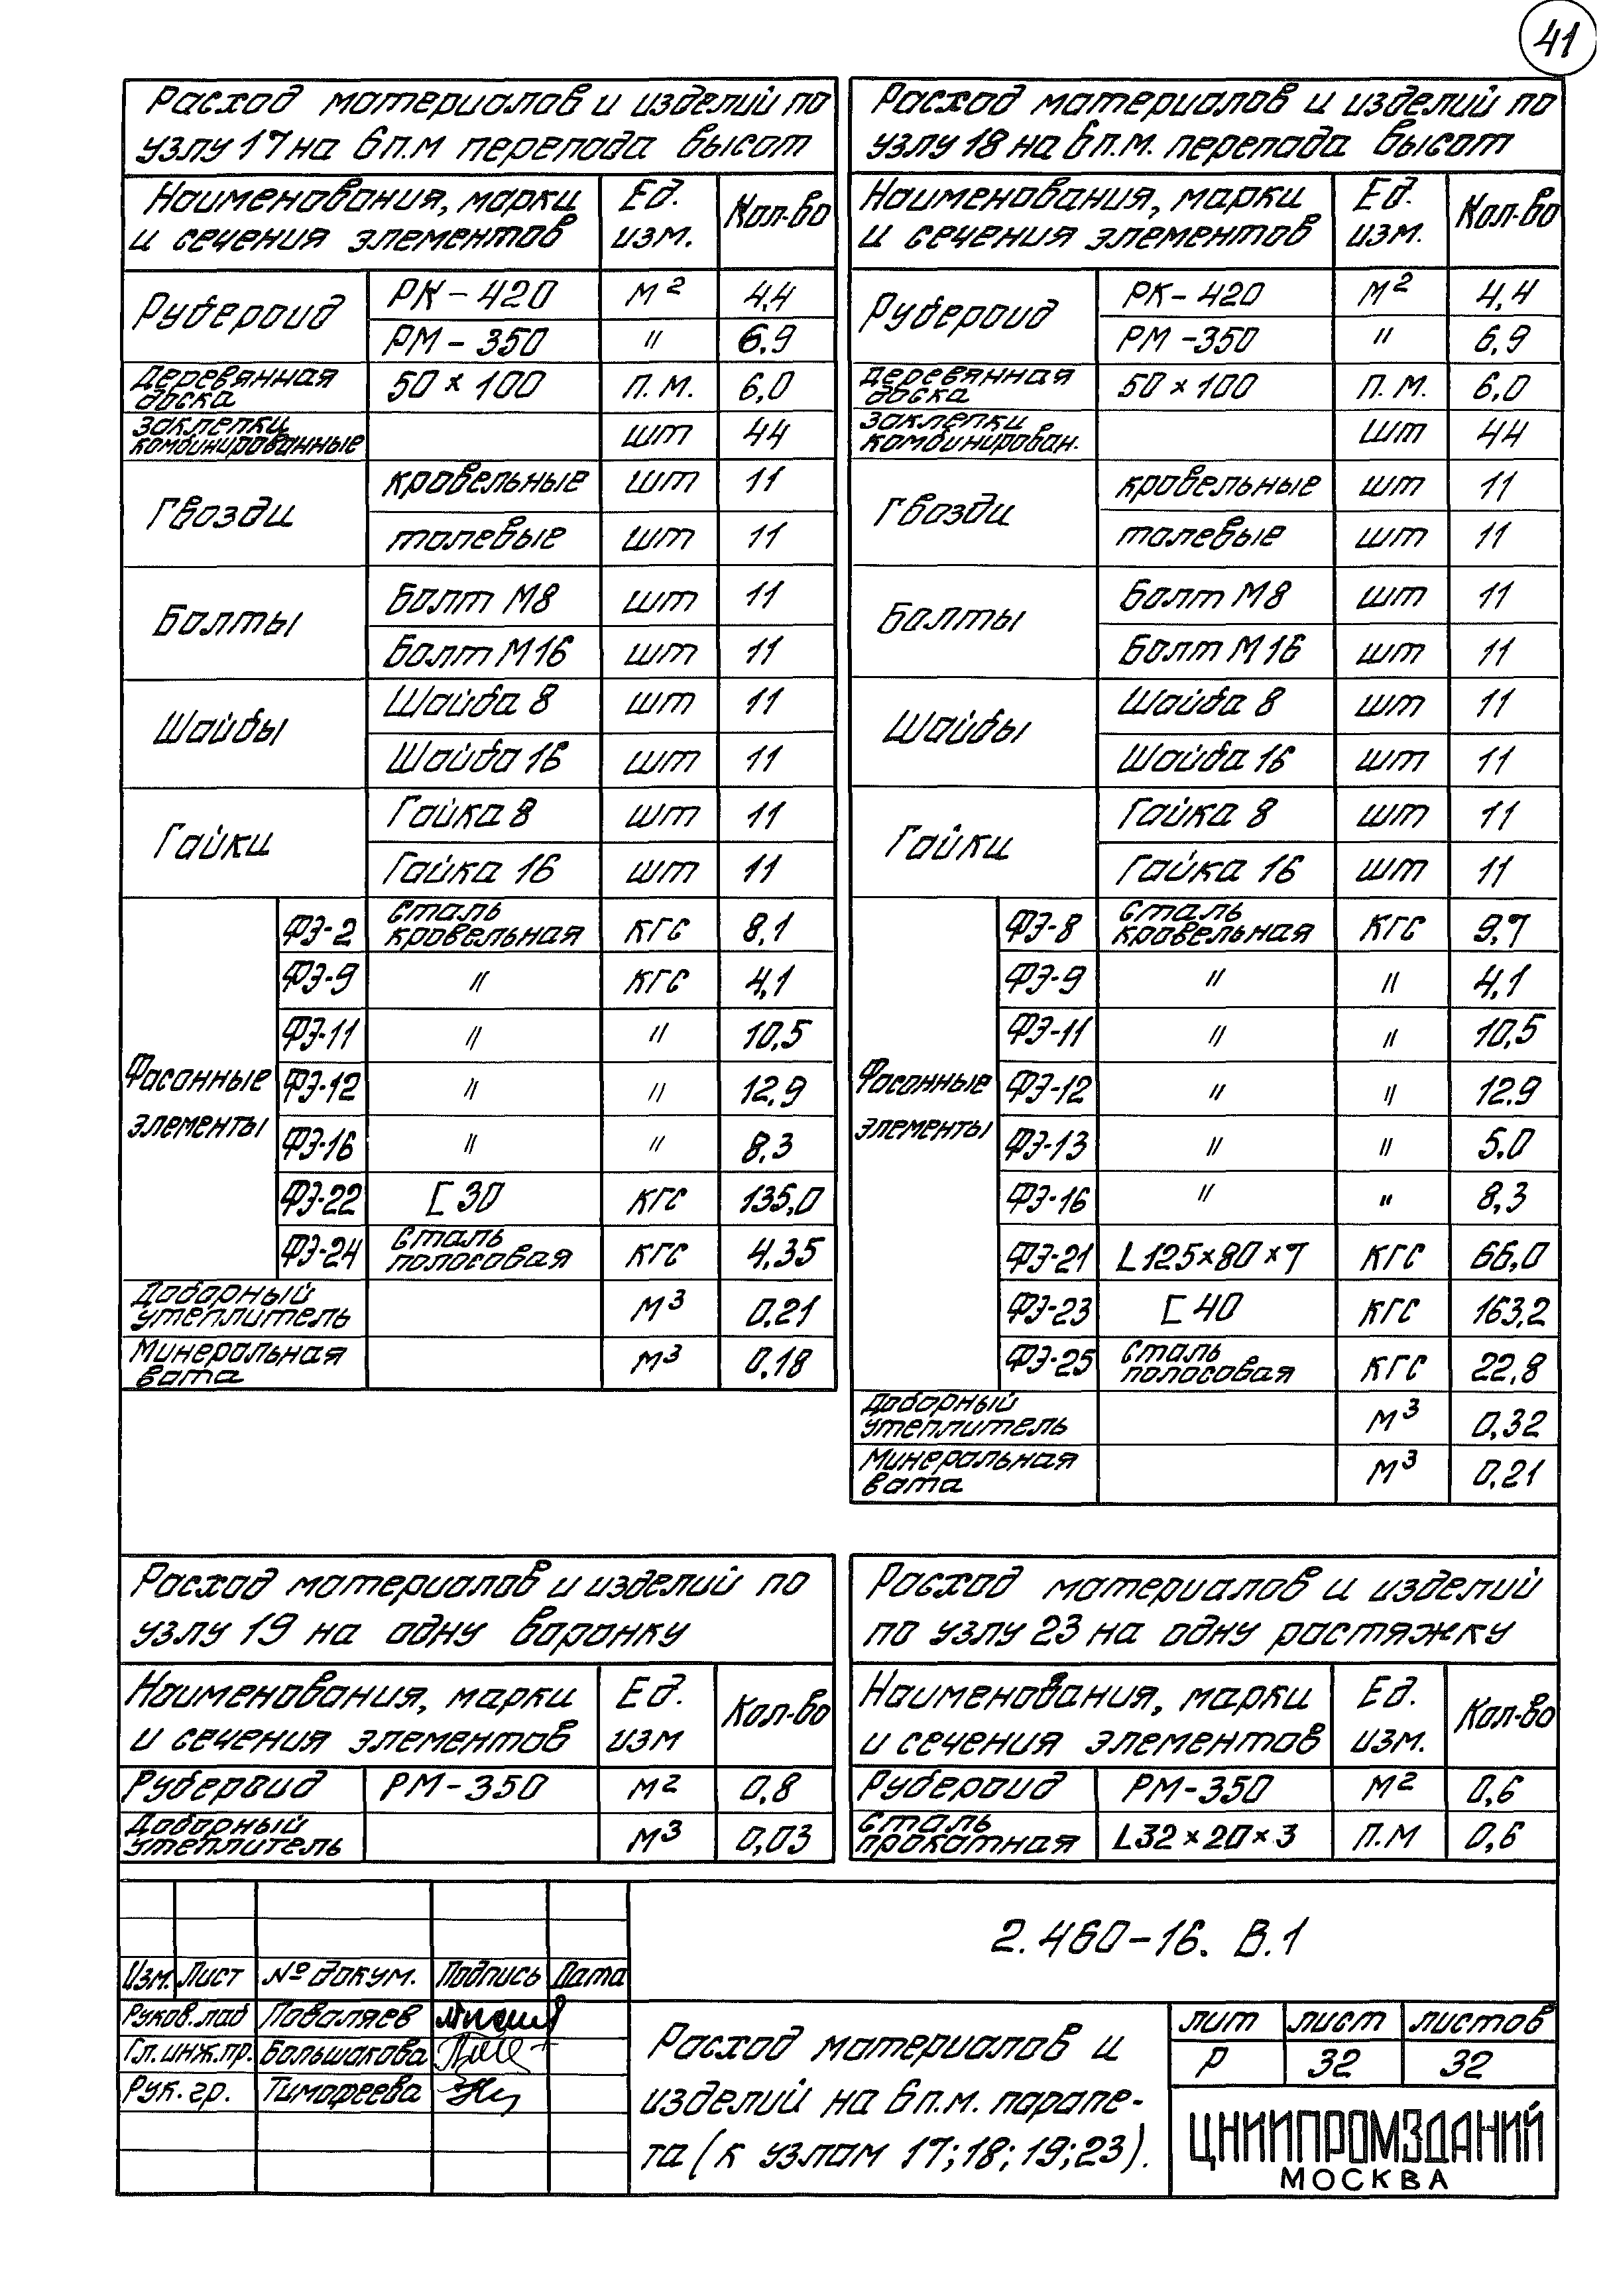 41
Расход материалов и изделий по
узлу 17 на 6 п.м перепада высот
Наименования, марки
и сечения элементов
Ед.
изм.
Кол-во
Рубероид РК-420 м² 4,4
РМ-350 " 6,9
Деревянная
доска 50×100 п.м. 6,0
Заклепки
комбинированные шт 44
Гвозди кровельные шт 11
толевые шт 11
Болты Болт М8 шт 11
Болт М16 шт 11
Шайбы Шайба 8 шт 11
Шайба 16 шт 11
Гайки Гайка 8 шт 11
Гайка 16 шт 11
Фасонные
элементы
ФЭ-2 Сталь
кровельная кгс 8,1
ФЭ-9 " кгс 4,1
ФЭ-11 " " 10,5
ФЭ-12 " " 12,9
ФЭ-16 " " 8,3
ФЭ-22 [ 30 кгс 135,0
ФЭ-24 Сталь
полосовая кгс 4,35
Доборный
утеплитель м³ 0,21
Минеральная
вата м³ 0,18
Расход материалов и изделий по
узлу 18 на 6 п.м. перепада высот
Наименования, марки
и сечения элементов
Ед.
изм.
Кол-во
Рубероид РК-420 м² 4,4
РМ-350 " 6,9
Деревянная
доска 50×100 п.м. 6,0
Заклепки
комбинирован. шт 44
Гвозди кровельные шт 11
толевые шт 11
Болты Болт М8 шт 11
Болт М16 шт 11
Шайбы Шайба 8 шт 11
Шайба 16 шт 11
Гайки Гайка 8 шт 11
Гайка 16 шт 11
Фасонные
элементы
ФЭ-8 Сталь
кровельная кгс 9,7
ФЭ-9 " " 4,1
ФЭ-11 " " 10,5
ФЭ-12 " " 12.9
ФЭ-13 " " 5.0
ФЭ-16 " " 8,3
ФЭ-21 L125×80×7 кгс 66,0
ФЭ-23 [ 40 кгс 163,2
ФЭ-25 Сталь
полосовая кгс 22,8
Доборный
утеплитель м³ 0,32
Минеральная
вата м³ 0,21
Расход материалов и изделий по
узлу 19 на одну воронку
Наименования, марки
и сечения элементов
Ед.
изм
Кол-во
Рубероид РМ-350 м² 0,8
Доборный
утеплитель м³ 0,03
Расход материалов и изделий
по узлу 23 на одну растяжку
Наименования, марки
и сечения элементов
Ед.
изм.
Кол-во
Рубероид РМ-350 м² 0,6
Сталь
прокатная L32×20×3 п.м 0,6
2.460-16. В.1
Изм. Лист № докум. Подпись Дата
Руков.лаб Поваляев
Гл.инж.пр. Большакова
Рук.гр. Тимофеева
Расход материалов и
изделий на 6 п.м. парапе-
та (к узлам 17; 18; 19; 23).
лит лист листов
Р 32 32
ЦНИИПРОМЗДАНИЙ
МОСКВА